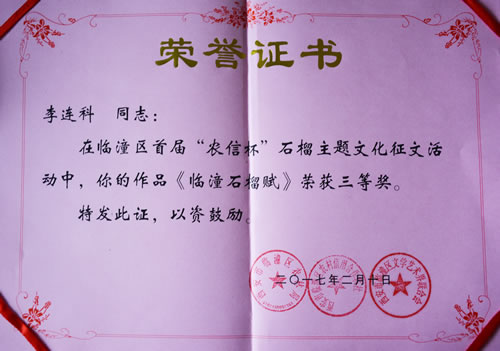 荣誉证书
李连科 同志：
在临潼区首届“农信杯”石榴主题文化征文活
动中，你的作品《临潼石榴赋》荣获三等奖。
特发此证，以资鼓励。
二〇一七年二月十日